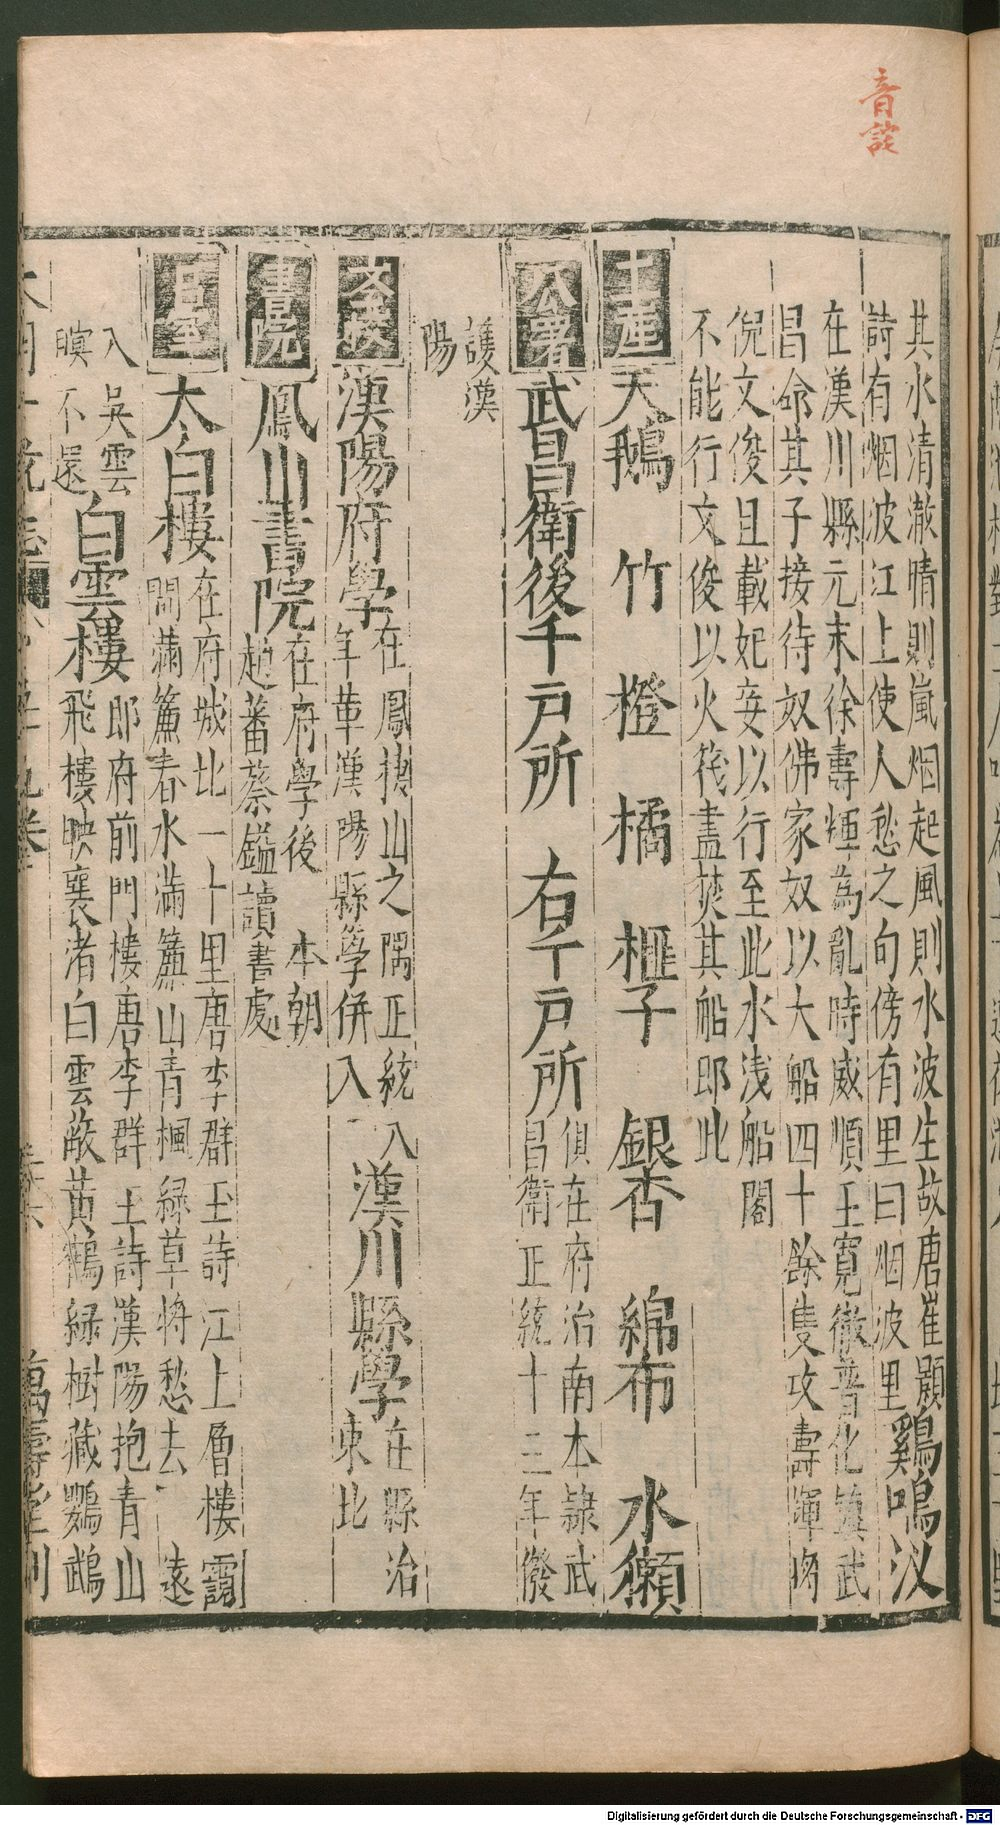 音詫
其水清澈晴則嵐烟起風則水波生故唐崔顥
詩有烟波江上使人愁之句傍有里曰烟波里
鷄鳴汊
在漢川縣元末徐壽煇為亂時威順王寬徹普化鎮武
昌命其子接待奴佛家奴以大船四十餘隻攻壽輝將
倪文俊且載妃妾以行至此水浅船閣
不能行文俊以火筏盡焚其船即此
土產
天鵝 竹 橙 橘 榧子 銀杏 綿布 水獺
公署
武昌衛後千戶所 右千戶所
俱在府治南本隷武
昌衛正統十三年僾
護漢
陽
漢陽府學
在鳳棲山之隅正統八
年革漢陽縣學併入
漢川縣學
在縣治
東北
書院
鳳山書院
在府學後 本朝
趙蕃蔡鎰讀書處
太白樓
在府城北一十里唐李群玉詩江上層樓靄
間滿簾春水滿簾山青楓緑草將愁去遠
入吳雲
暝不還
白雲樓
即府前門樓唐李群玉詩漢陽抱青山
飛樓映襄渚白雲蔽黄鶴緑樹藏鸚鵡
萬壽堂刊
Digitalisierung gefördert durch die Deutsche Forschungsgemeinschaft - DFG